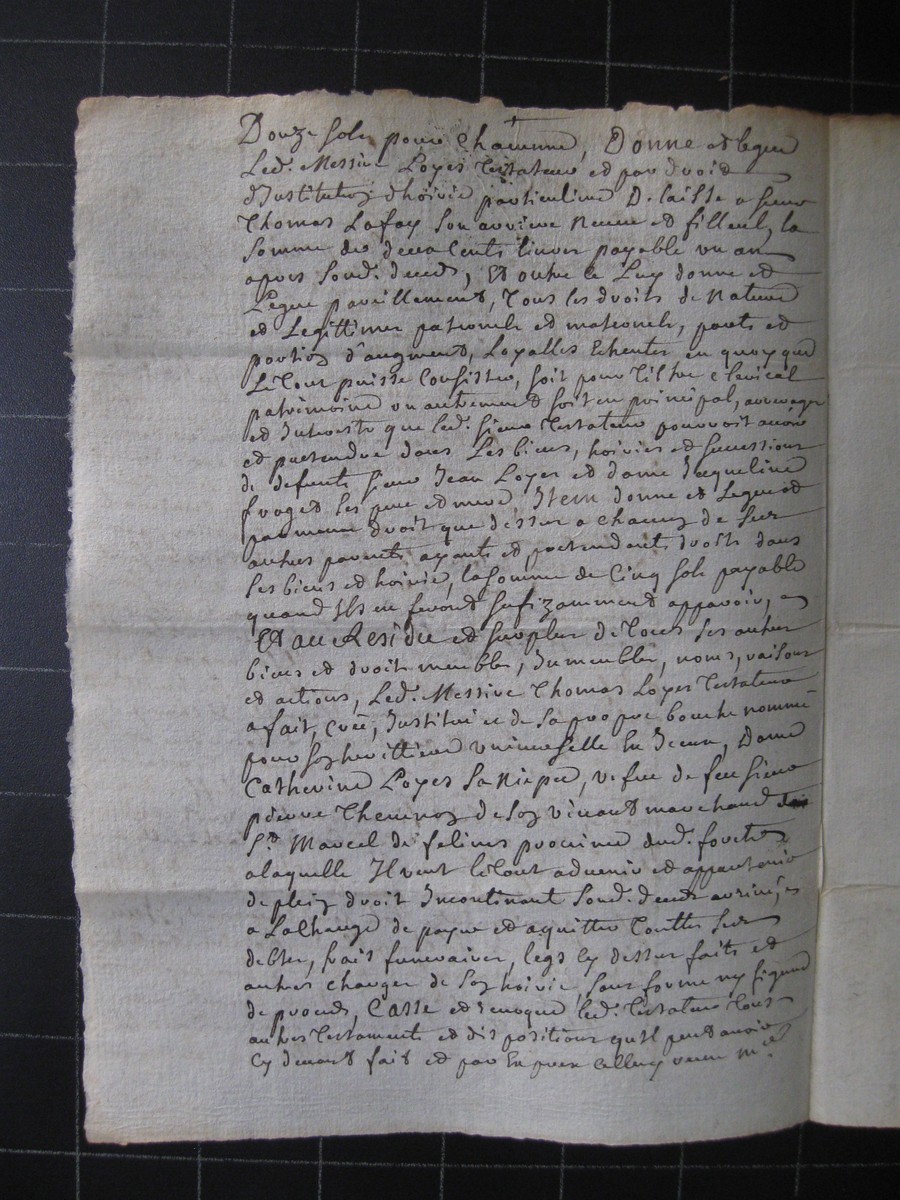 Douze sols pour chacune, Donne et legue
Led. Messire Loyes Testateur et par droit
d'Institution d'hoirie particuliere Delaisse a sieur
Thomas Lafay son arriere neveu et filleul, la
somme de deux Cents livres payable un an
apres sond. deceds, Et outre ce Luy donne et
Legue pareillement, Tous les droits de Nature
et Legittimes paternels et maternels, parts et
portion d'augment, Loyalles Echeutes en quoy que
Le Tout puisse Consister, soit pour Tiltre Clerical
patrimoine ou autrement soit en principal, arrerages
et Interests que led. sieur Testateur pouvoit avoir
et pretendre dans Les biens, hoiries et successions
de defunts sieur Jean Loyes et dame Jaqueline
froget ses pere et mere, Item donne et Legue et
par meme droit que dessus a chacun de ses
autres parents ayants et pretendants droits dans
ses biens et hoirie, la somme de Cinq sols payable
quand Ils en feront sufizamment apparoir,
Et au Residu et surplus de Tous ses autres
biens et droits meubles, Immeubles, noms, raisons
et actions, Led. Messire Thomas Loyes Testateur
a fait, Créé, Institué et de sa propre bouche nommé
pour son herittiere universelle dame
Catherine Loyes sa Niepce, vefue de feu sieur
pierre Thevenon de son vivant marchand
St. Marcel de felines province dud. forets
a laquelle Il veut le Tout advenir et appartenir
de plein droit Incontinant sond. deceds arrivé,
a La Charge de payer et aquitter Touttes ses
debtes, frais funeraires, legs Cy dessus faits et
autres charges de son hoirie, sans forme ny figure
de proceds, Casse et revoque led. Testateur Tous
autres Testaments et dispositions qu'Il peut avoir
Cy devant fait et par Exprex Celluy receu me.